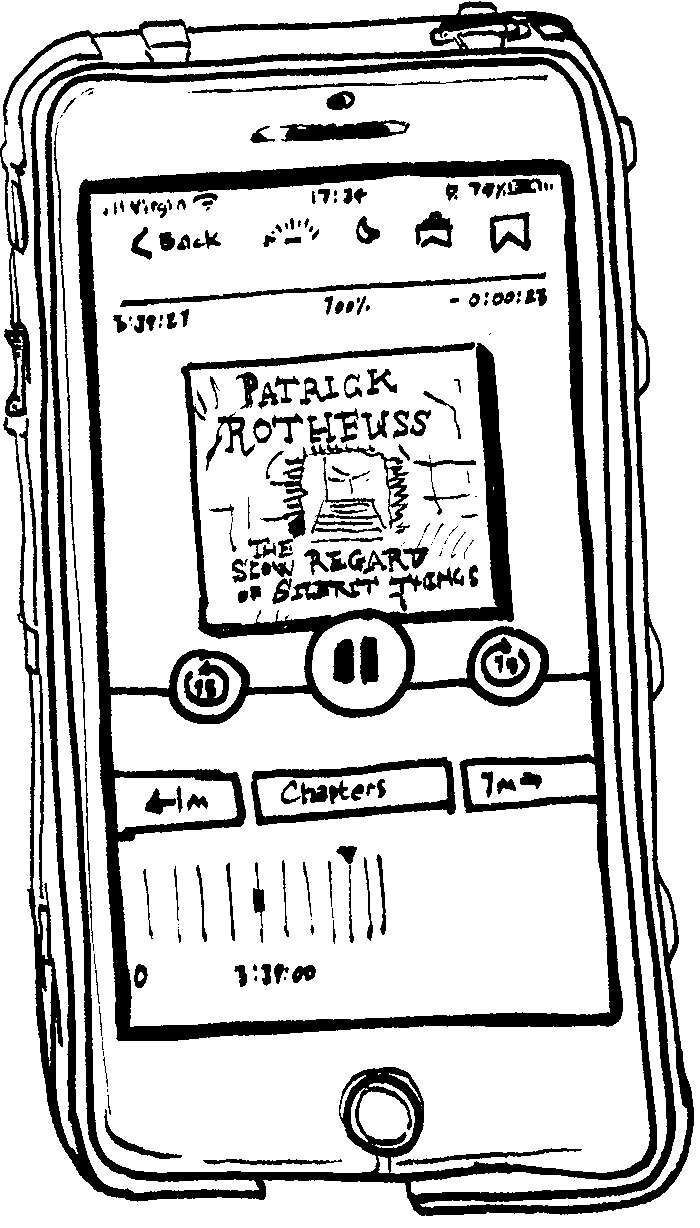 Virgin 17:34 74%
Back
3:39:27 100% - 0:00:23
PATRICK
ROTHFUSS
THE
SLOW REGARD
OF SILENT THINGS
15 15
←1m Chapters 1m→
0 3:39:00